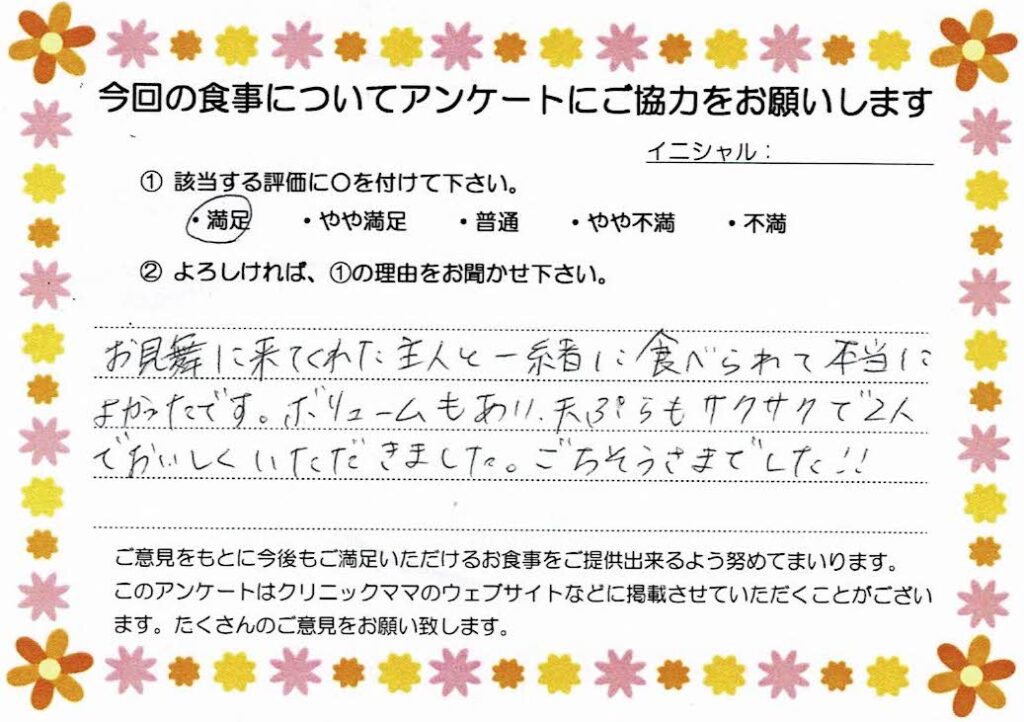 今回の食事についてアンケートにご協力をお願いします
イニシャル：
① 該当する評価に〇を付けて下さい。
・満足 ・やや満足 ・普通 ・やや不満 ・不満
② よろしければ、①の理由をお聞かせ下さい。
お見舞に来てくれた主人と一緒に食べられて本当に
よかったです。ボリュームもあり、天ぷらもサクサクで2人
でおいしくいただきました。ごちそうさまでした!!
ご意見をもとに今後もご満足いただけるお食事をご提供出来るよう努めてまいります。
このアンケートはクリニックママのウェブサイトなどに掲載させていただくことがござい
ます。たくさんのご意見をお願い致します。